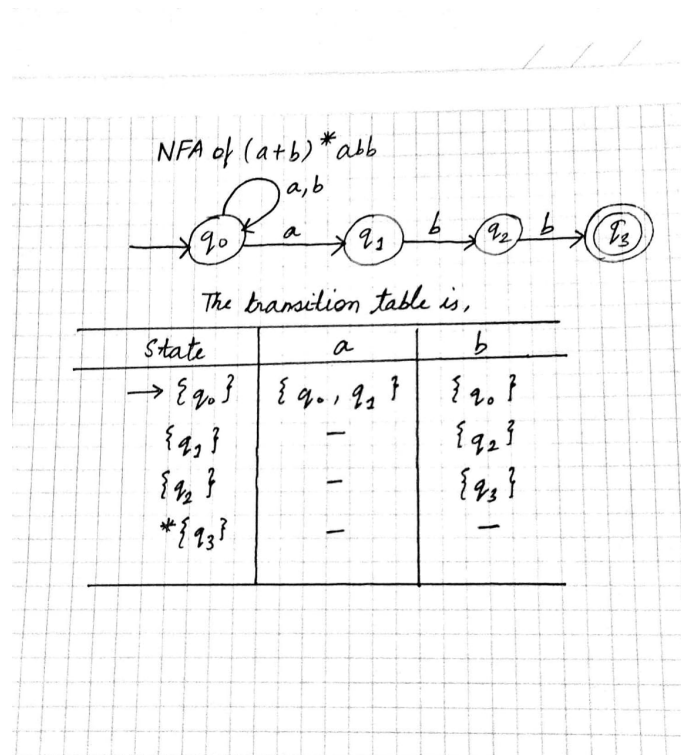 NFA of (a+b)*abb
a,b
q0 a q1 b q2 b q3
The transition table is,
State a b
→ {q0} {q0, q1} {q0}
{q1} – {q2}
{q2} – {q3}
*{q3} – –